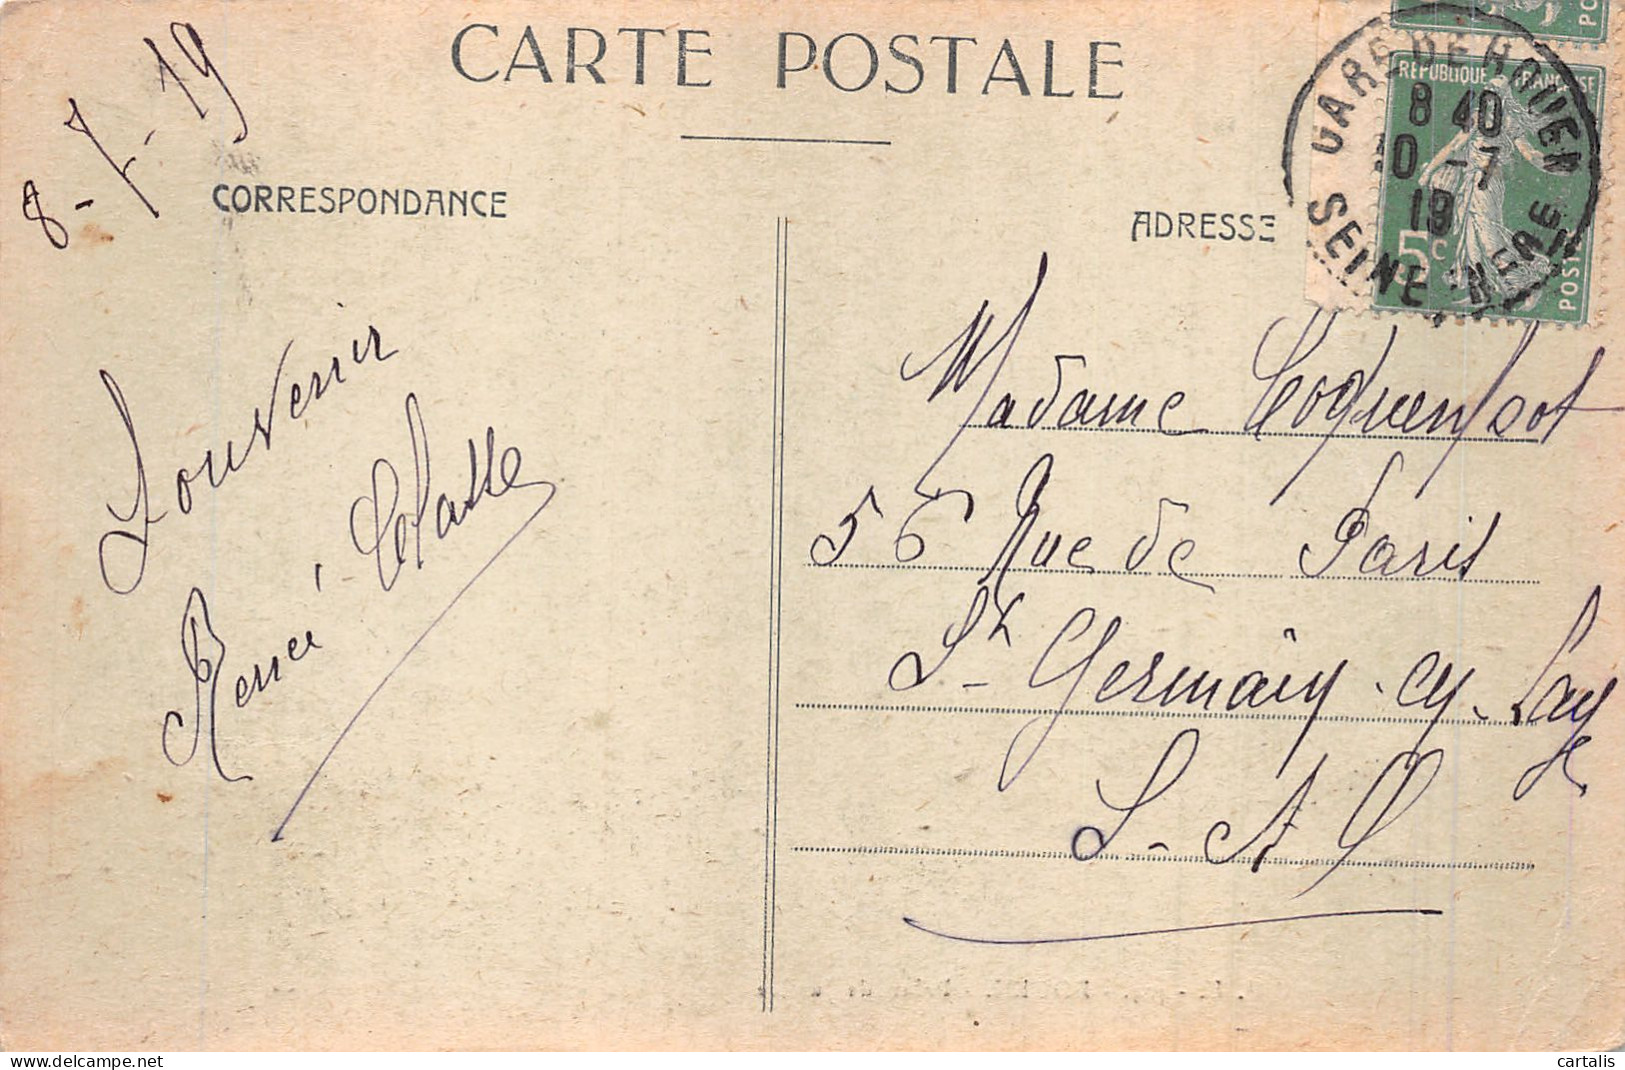 CARTE POSTALE
8-7-19
CORRESPONDANCE
ADRESSE
GARE DE ROUEN
8 40
10 -7
19
SEINE INFRE
RÉPUBLIQUE FRANÇAISE
5c
POSTES
Souvenir
Renée
Madame
56 Rue de Paris
St Germain-en-Laye
S-&-O
cartalis